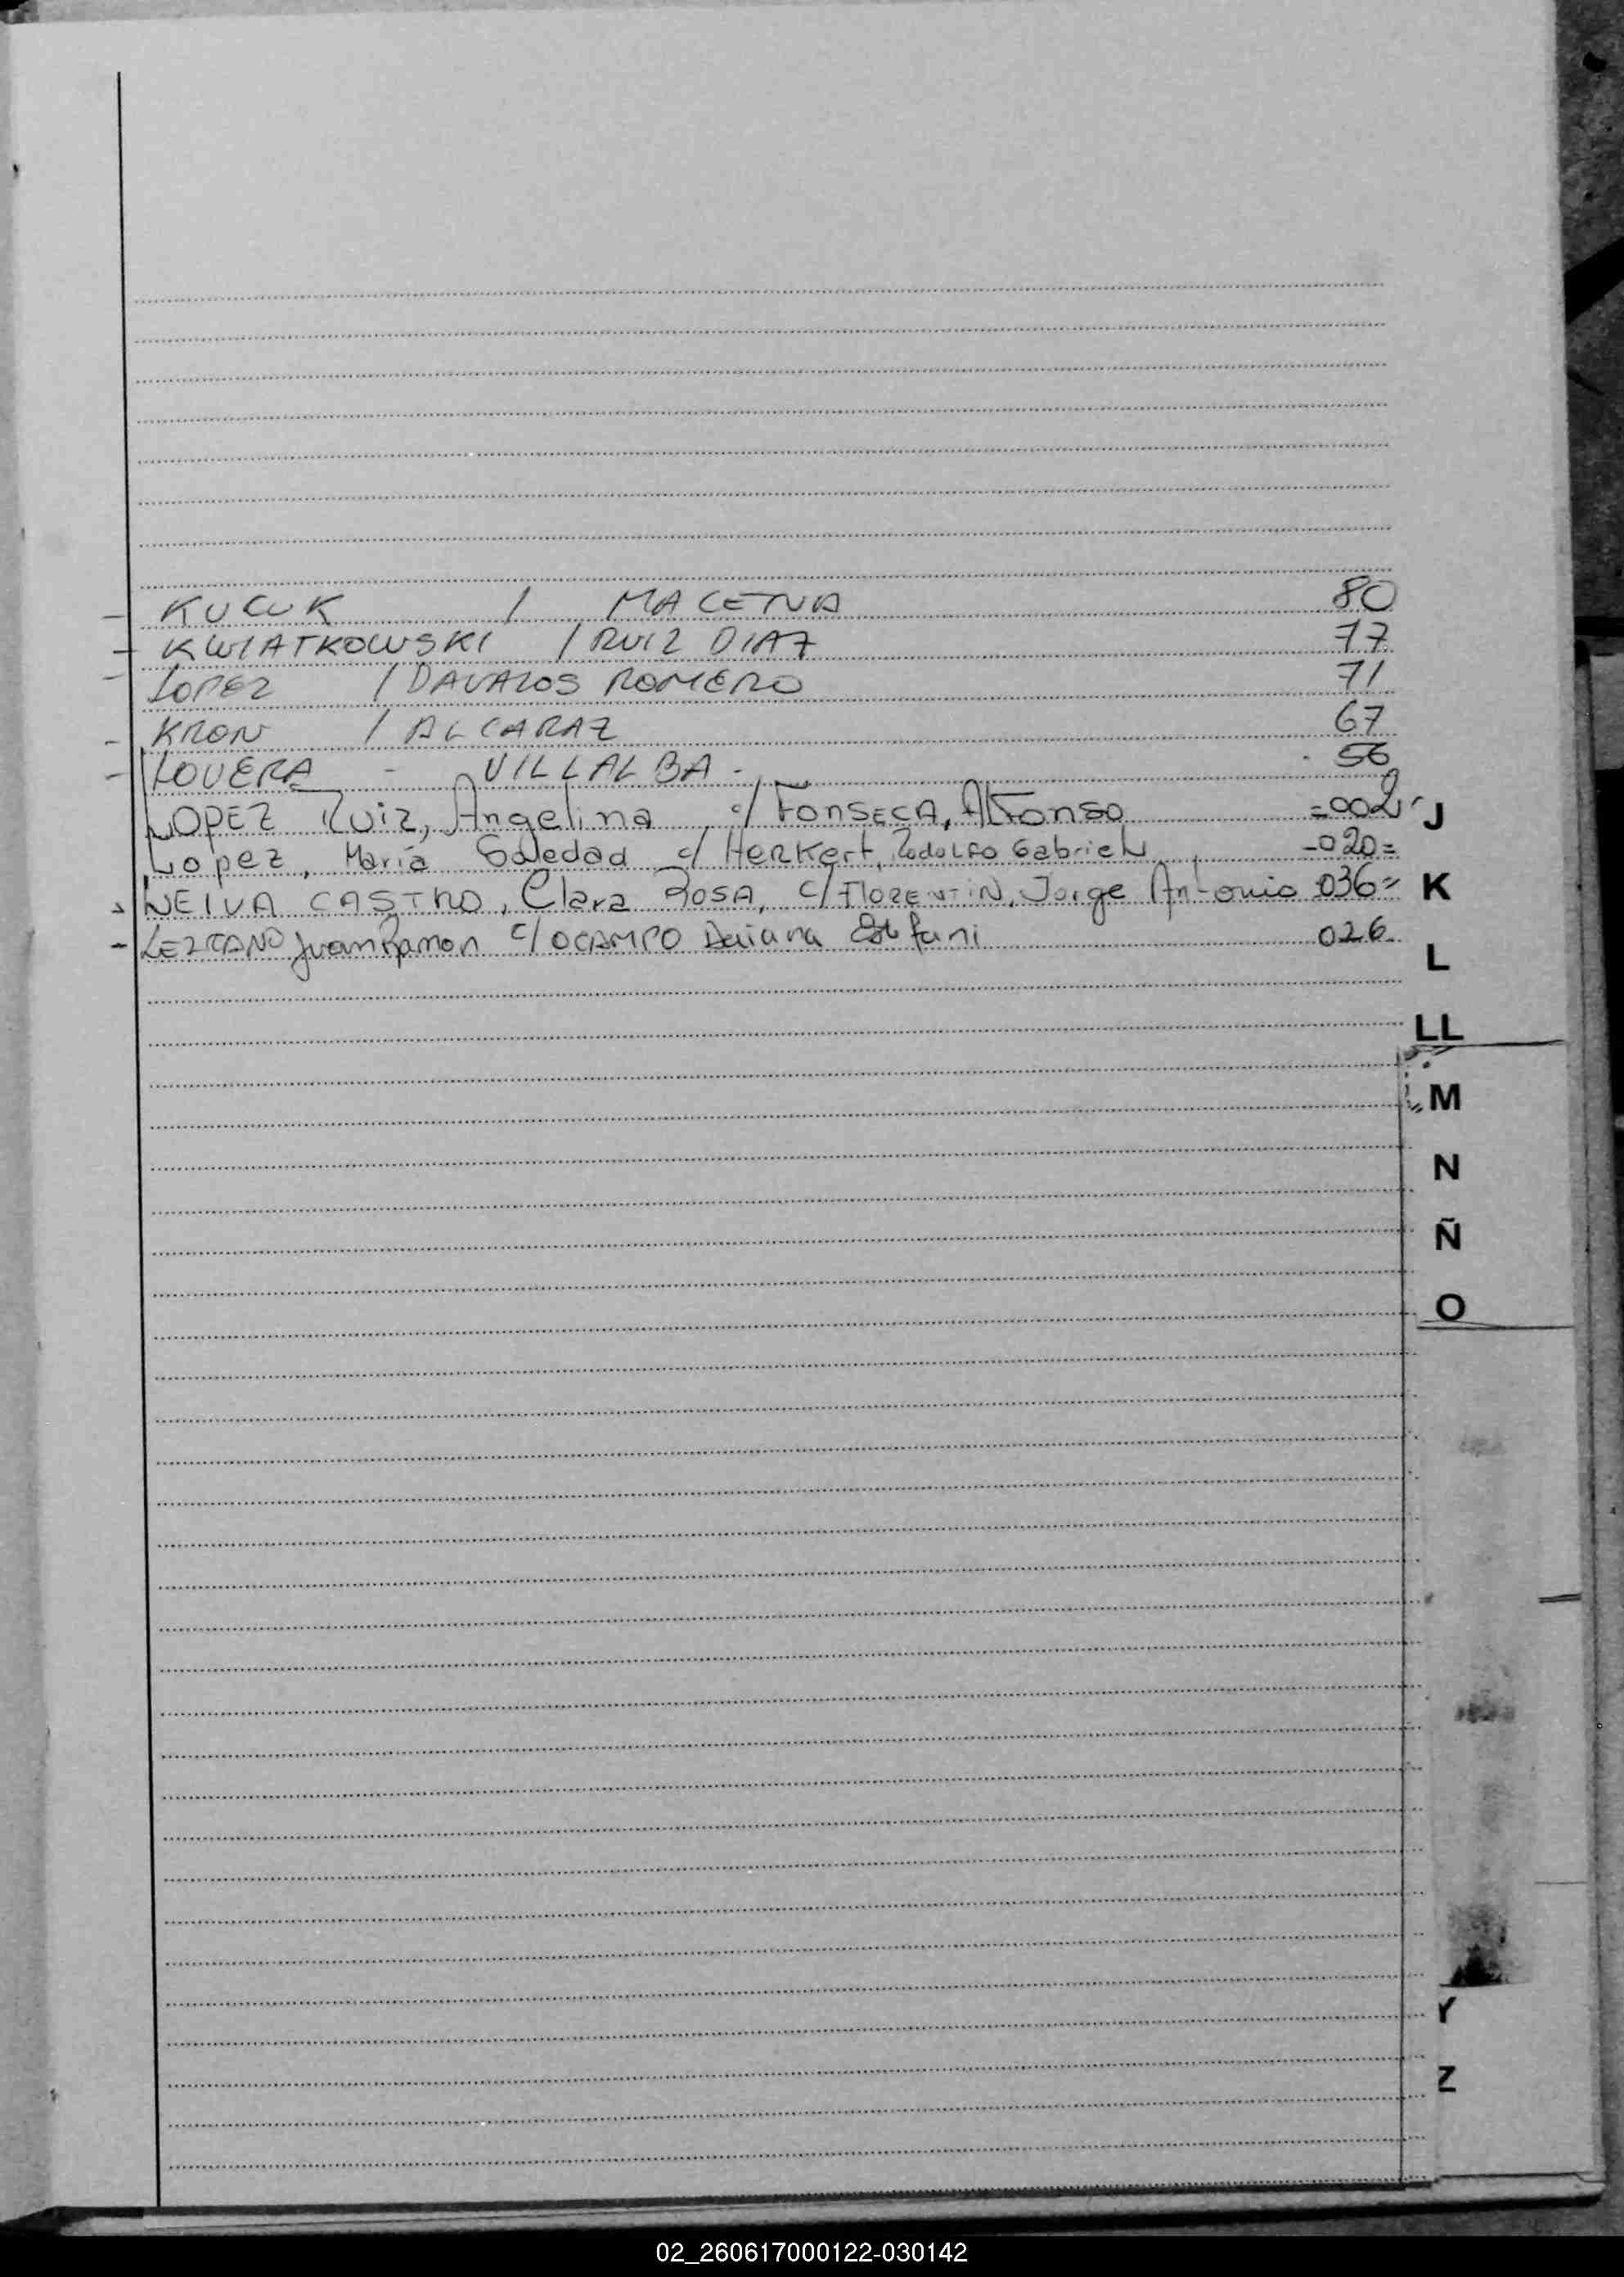 - KUCUK / MACENA 80
- KWIATKOWSKI / RUIZ DIAZ 77
- LOPEZ / DAVALOS ROMERO 71
- KRON / ALCARAZ 67
- LOVERA - VILLALBA - 56
LOPEZ Ruiz, Angelina c/ FONSECA, Alfonso =002- J
Lopez, María Soledad c/ Herkert, Rodolfo Gabriel -020=
NEIVA CASTRO, Clara ROSA, c/ FLORENTIN, Jorge Antonio 036= K
- LEZCANO Juan Ramon c/ OCAMPO Daiana 026
L
LL
M
N
Ñ
O
Y
Z
02_260617000122-030142